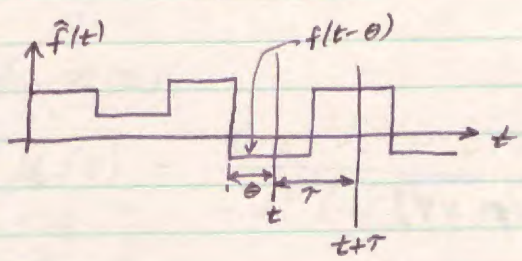 f̂(t)
f(t-θ)
t
θ
τ
t
t+τ